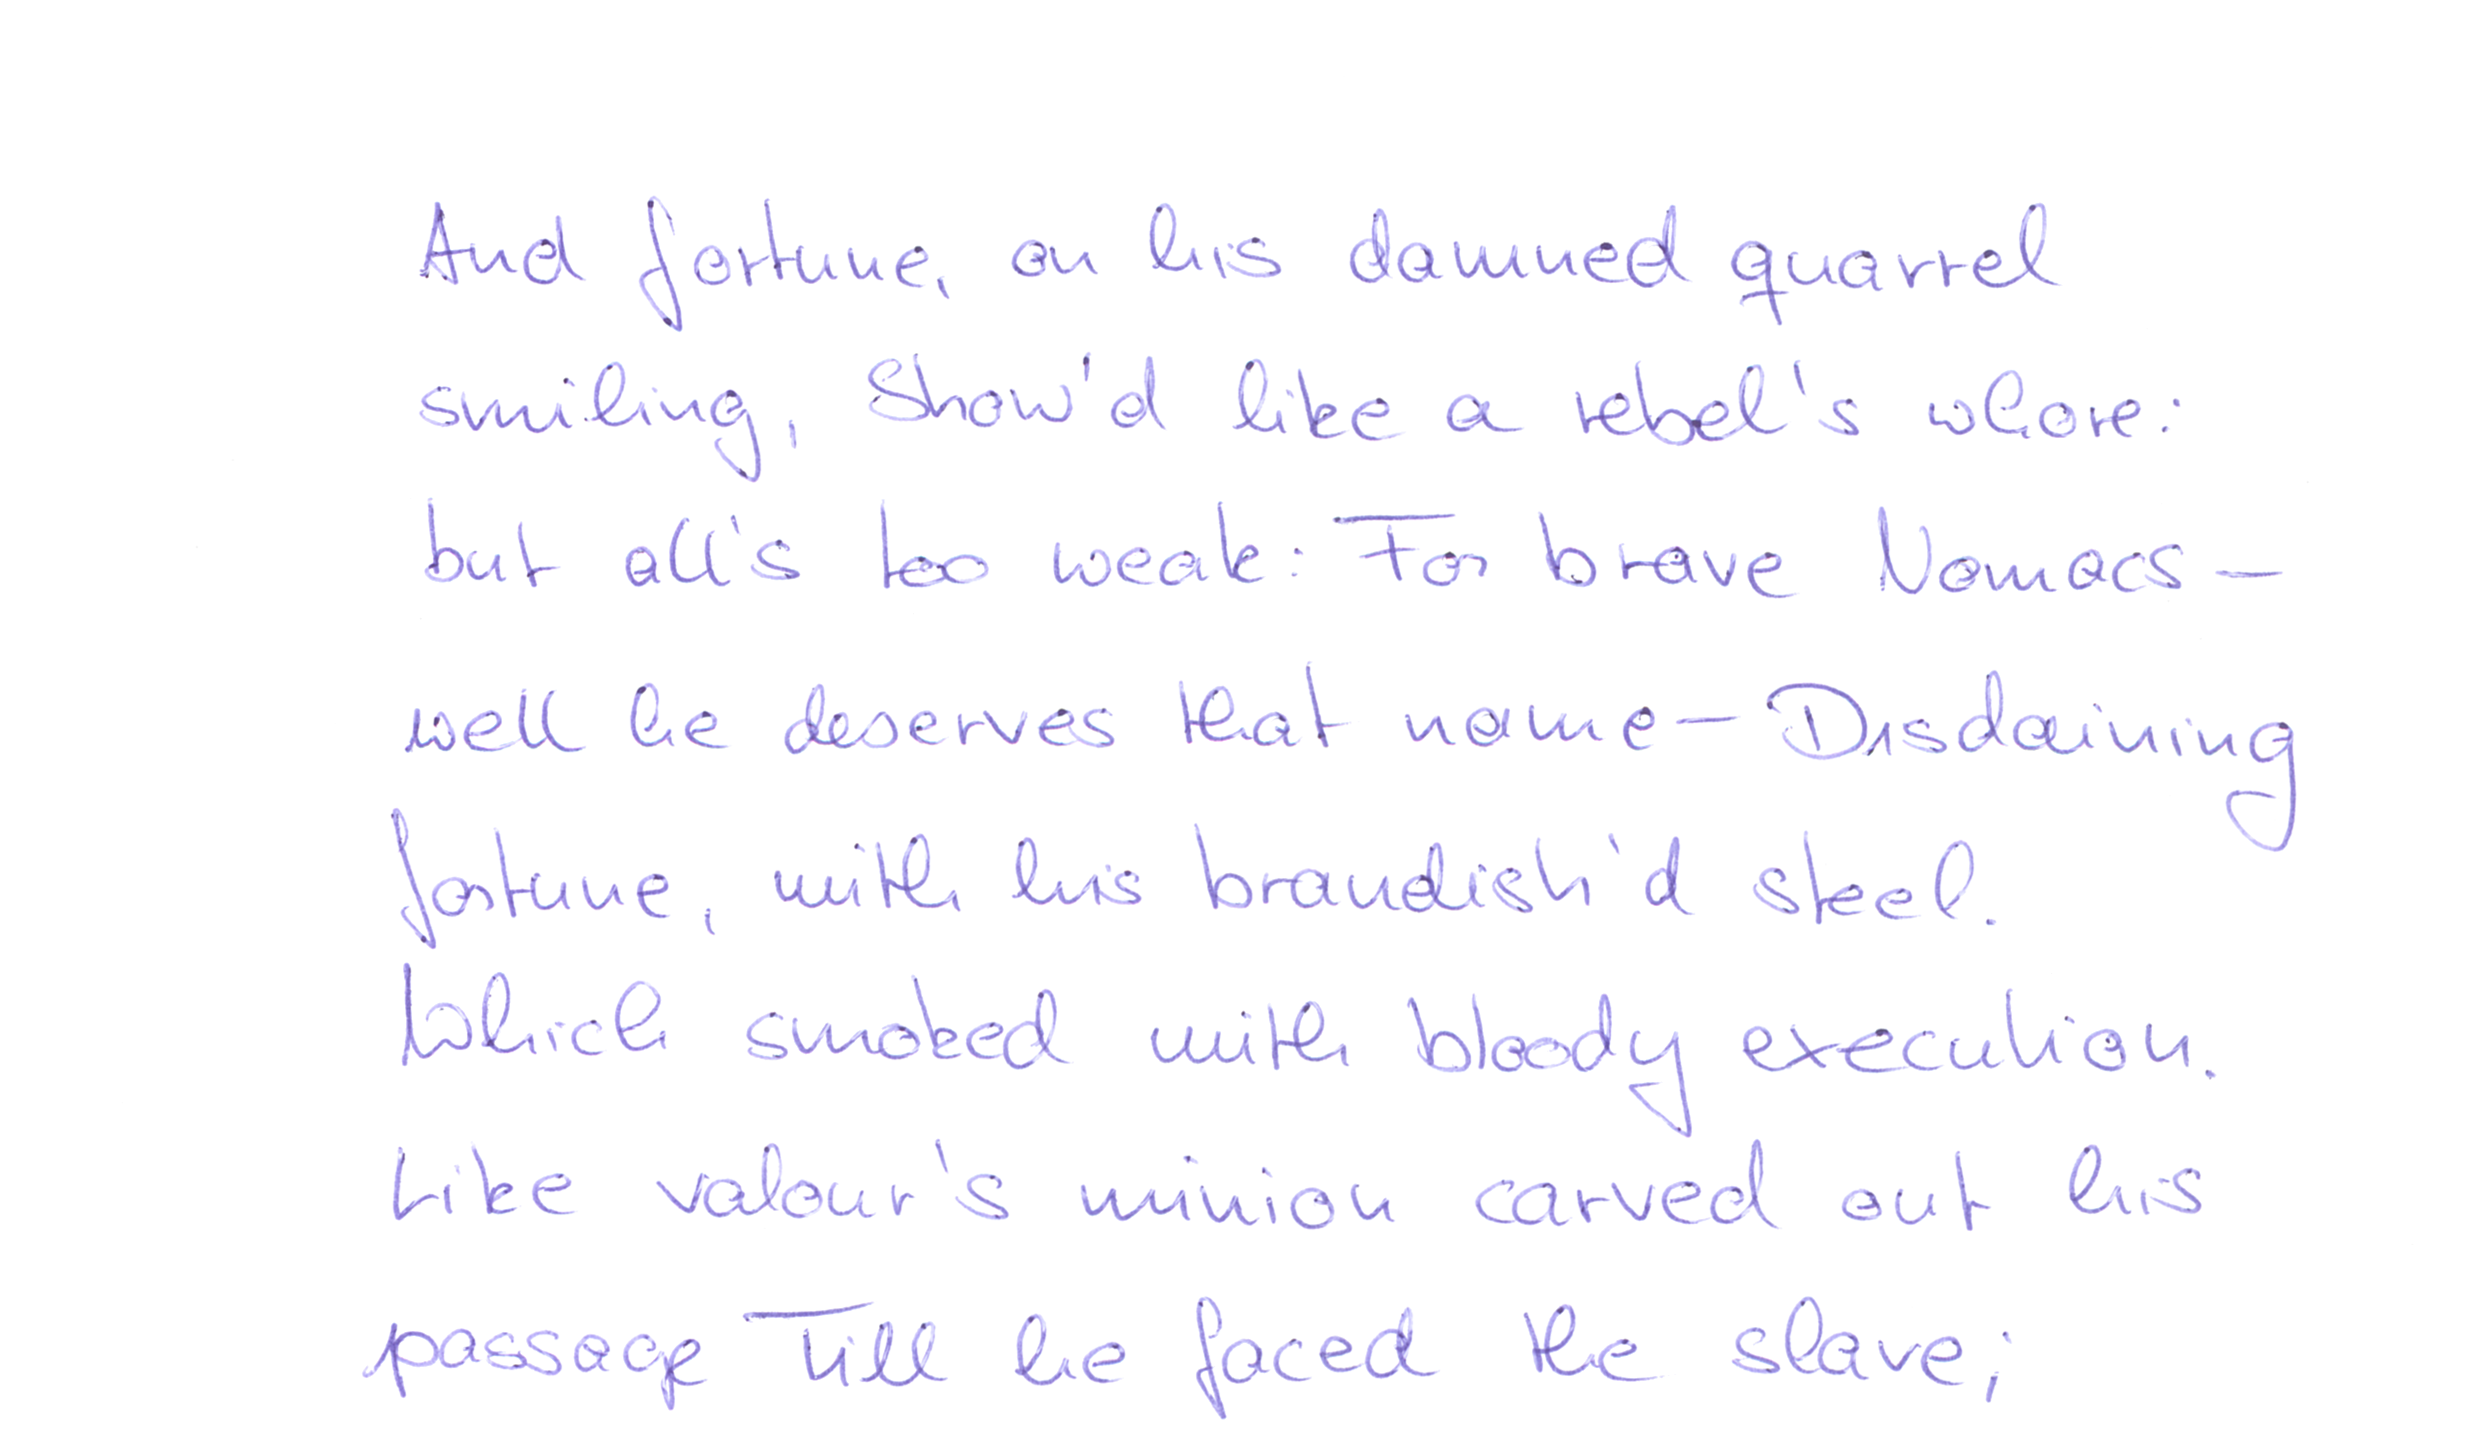 And fortune, on his damned quarrel
smiling, Show'd like a rebel's whore:
but all's too weak: For brave Nomacs–
well he deserves that name–Disdaining
fortune, with his brandish'd steel.
Which smoked with bloody execution.
Like valour's minion carved out his
passage Till he faced the slave;